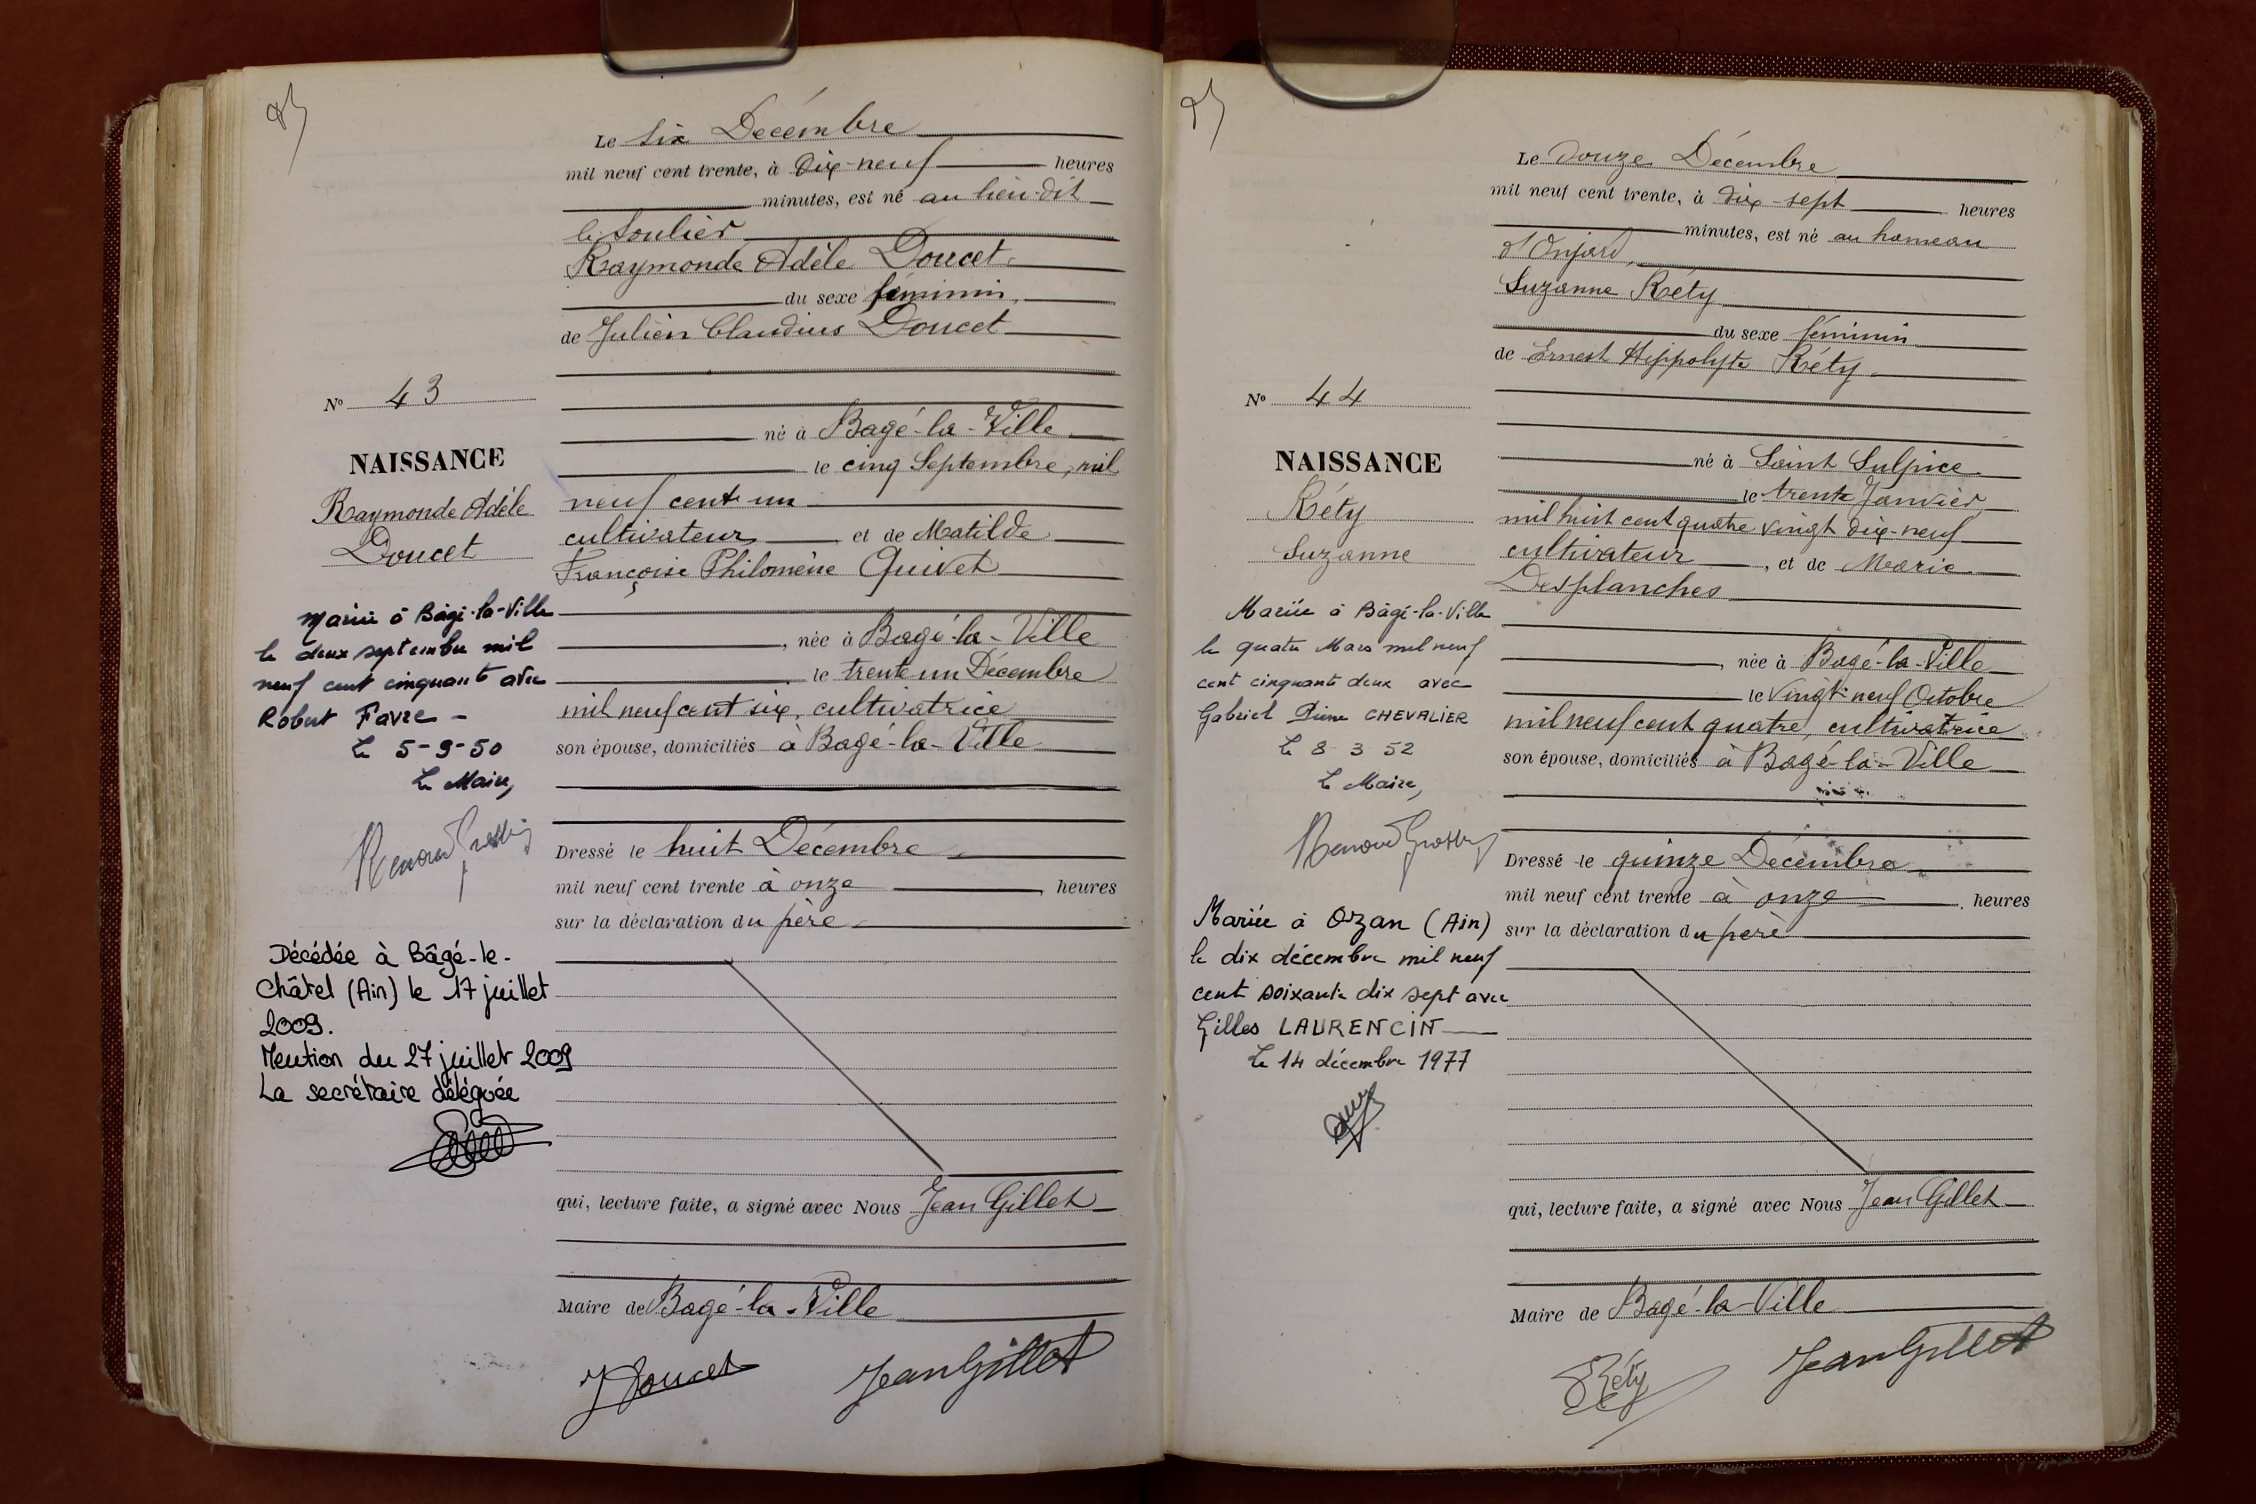 Le six Décembre
mil neuf cent trente, à dix-neuf heures
minutes, est né au lieu-dit
le Soulier
Raymonde Adèle Doucet
du sexe féminin,
de Julien Claudius Doucet
né à Bagé-la-Ville
le cinq Septembre, mil
neuf cent un
cultivateur et de Matilde
Françoise Philomène Quivet
, née à Bagé-la-Ville
le trente un Décembre
mil neuf cent six, cultivatrice
son épouse, domiciliés à Bagé-la-Ville
Dressé le huit Décembre
mil neuf cent trente à onze heures
sur la déclaration du père
qui, lecture faite, a signé avec Nous Jean Gillet
Maire de Bagé-la-Ville
J Doucet Jean Gillet
No 43
NAISSANCE
Raymonde Adèle
Doucet
Mariée à Bâgé-la-Ville
le deux septembre mil
neuf cent cinquante avec
Robert Favre -
Le 5-9-50
Le Maire,
Décédée à Bâgé-le-
Châtel (Ain) le 17 juillet
2009.
Mention du 27 juillet 2009
La secrétaire déléguée
Le douze Décembre
mil neuf cent trente, à dix-sept heures
minutes, est né au hameau
d'Onjard,
Suzanne Réty
du sexe féminin
de Ernest Hippolyte Réty
né à Saint Sulpice
le trente Janvier
mil huit cent quatre vingt dix-neuf
cultivateur, et de Marie
Desplanches
, née à Bagé-la-Ville
le vingt-neuf Octobre
mil neuf cent quatre, cultivatrice
son épouse, domiciliés à Bagé-la-Ville
Dressé le quinze Décembre
mil neuf cent trente à onze heures
sur la déclaration du père
qui, lecture faite, a signé avec Nous Jean Gillet
Maire de Bagé-la-Ville
Réty Jean Gillet
No 44
NAISSANCE
Réty
Suzanne
Mariée à Bâgé-la-Ville
le quatre Mars mil neuf
cent cinquante deux avec
Gabriel Pierre CHEVALIER
Le 8 3 52
Le Maire,
Mariée à Ozan (Ain)
le dix décembre mil neuf
cent soixante dix sept avec
Gilles LAURENCIN
Le 14 décembre 1977